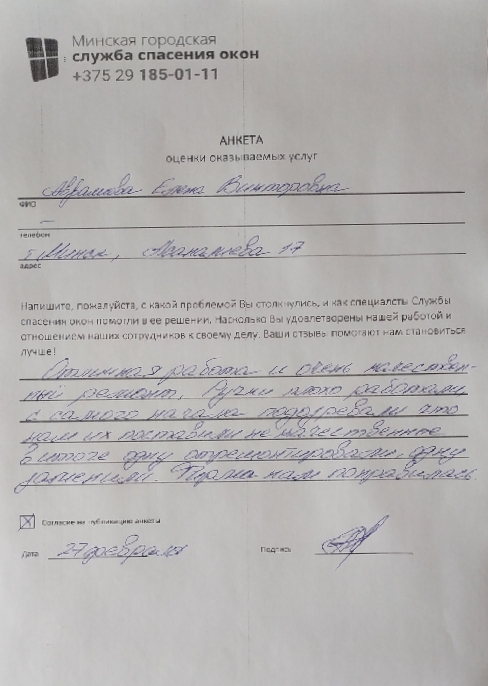 Минская городская
служба спасения окон
+375 29 185-01-11
АНКЕТА
оценки оказываемых услуг
Аврамова Елена Викторовна
ФИО
—
телефон
г. Минск, 17
адрес
Напишите, пожалуйста, с какой проблемой Вы столкнулись, и как специалсты Службы
спасения окон помогли в ее решении. Насколько Вы удовлетворены нашей работой и
отношением наших сотрудников к своему делу. Ваши отзывы помогают нам становиться
лучше!
Отличная работа и очень качествен-
ный ремонт. Ручки плохо работали,
с самого начала подозревали что
нам их поставили не качественные
В итоге одну отремонтировали, одну
заменили. нам понравилась.
Согласие на публикацию анкеты
Дата 27 февраля Подпись